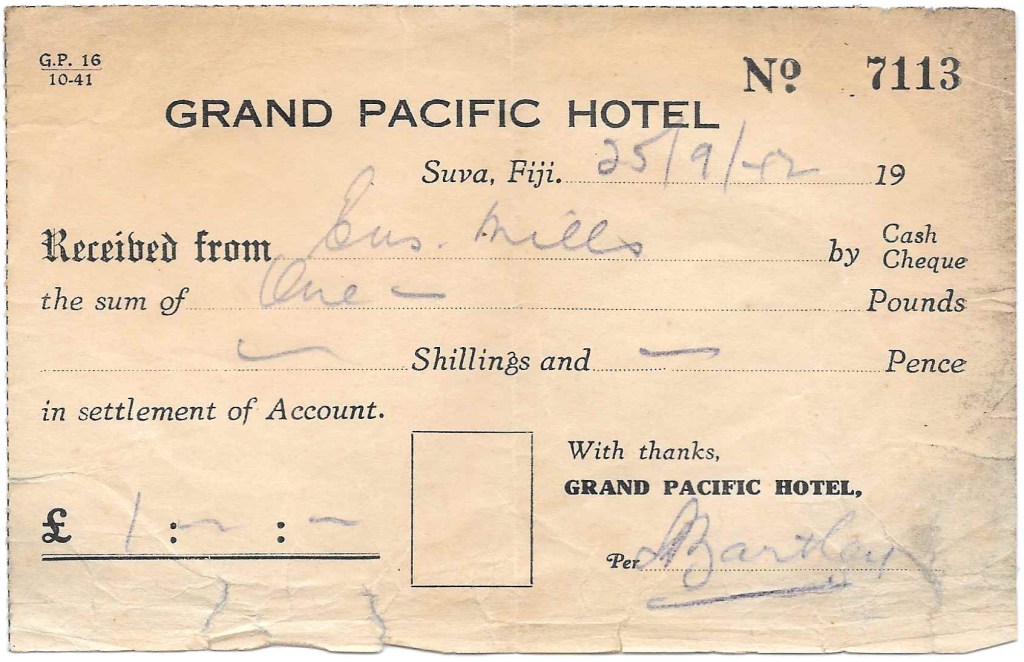 G.P. 16
10-41
No 7113
GRAND PACIFIC HOTEL
Suva, Fiji. 25/9/42 19
Received from Ens. Mills by Cash
Cheque
the sum of One — Pounds
— Shillings and — Pence
in settlement of Account.
With thanks,
GRAND PACIFIC HOTEL,
£ 1 : — : —
Per Bartley